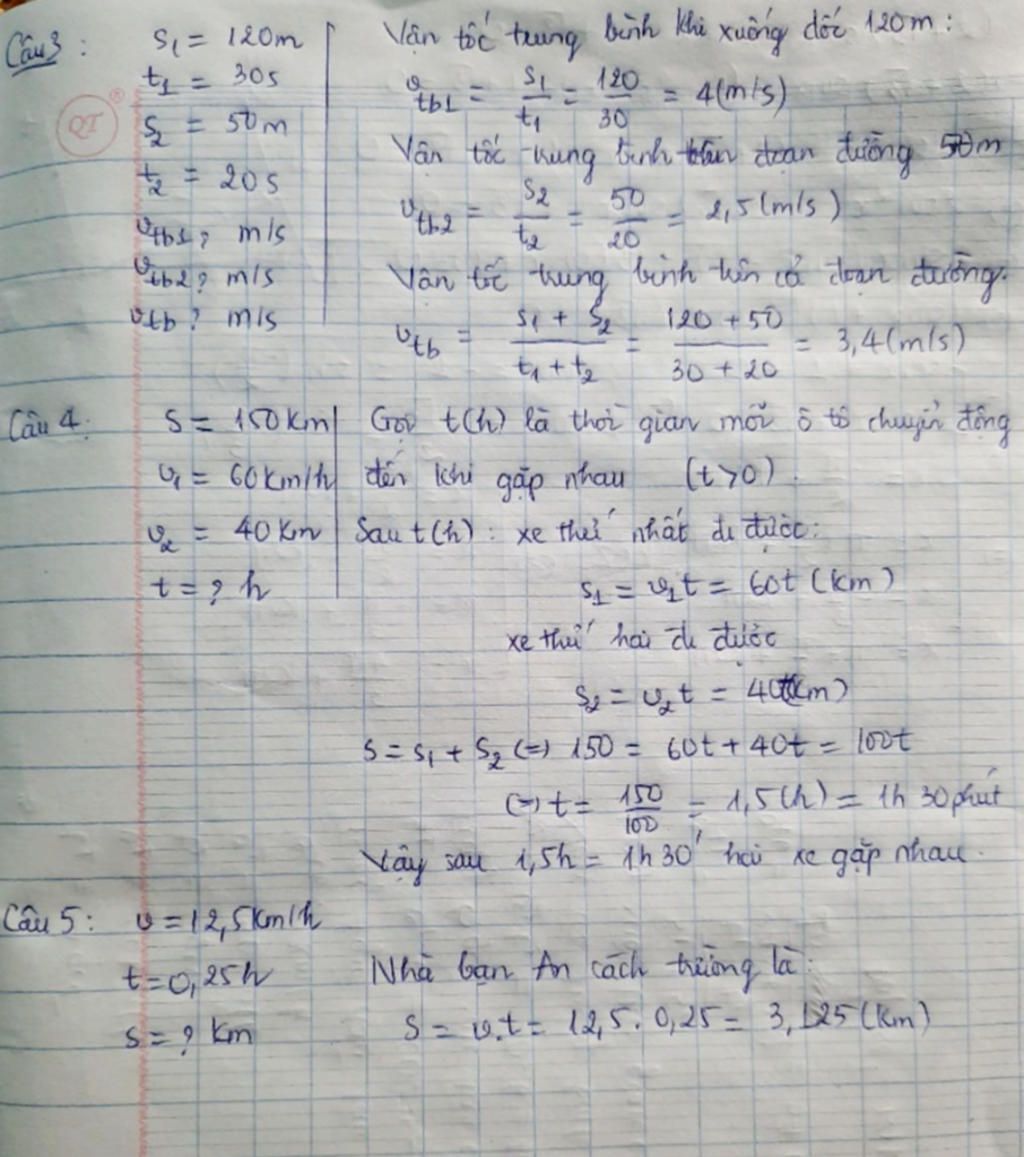 Câu 3:
s₁ = 120m
t₁ = 30s
s₂ = 50m
t₂ = 20s
vtb1? m/s
vtb2? m/s
vtb? m/s
Vận tốc trung bình khi xuống dốc 120m:
vtb1 = s₁/t₁ = 120/30 = 4(m/s)
Vận tốc trung bình trên đoạn đường 50m
vtb2 = s₂/t₂ = 50/20 = 2,5(m/s)
Vận tốc trung bình trên cả đoạn đường.
vtb = (s₁ + s₂)/(t₁ + t₂) = (120 + 50)/(30 + 20) = 3,4(m/s)
QT ®
Câu 4:
s = 150km
v₁ = 60km/h
v₂ = 40km
t = ? h
Gọi t(h) là thời gian mỗi ô tô chuyển động
đến khi gặp nhau (t>0).
Sau t(h): xe thứ nhất đi được:
s₁ = v₁t = 60t (km)
xe thứ hai đi được
s₂ = v₂t = 40t(km)
s = s₁ + s₂ (=) 150 = 60t + 40t = 100t
(=) t = 150/100 = 1,5(h) = 1h 30phút
Vậy sau 1,5h = 1h30' hai xe gặp nhau.
Câu 5:
v = 12,5km/h
t = 0,25h
s = ? km
Nhà bạn An cách trường là:
S = v.t = 12,5 . 0,25 = 3,125(km)